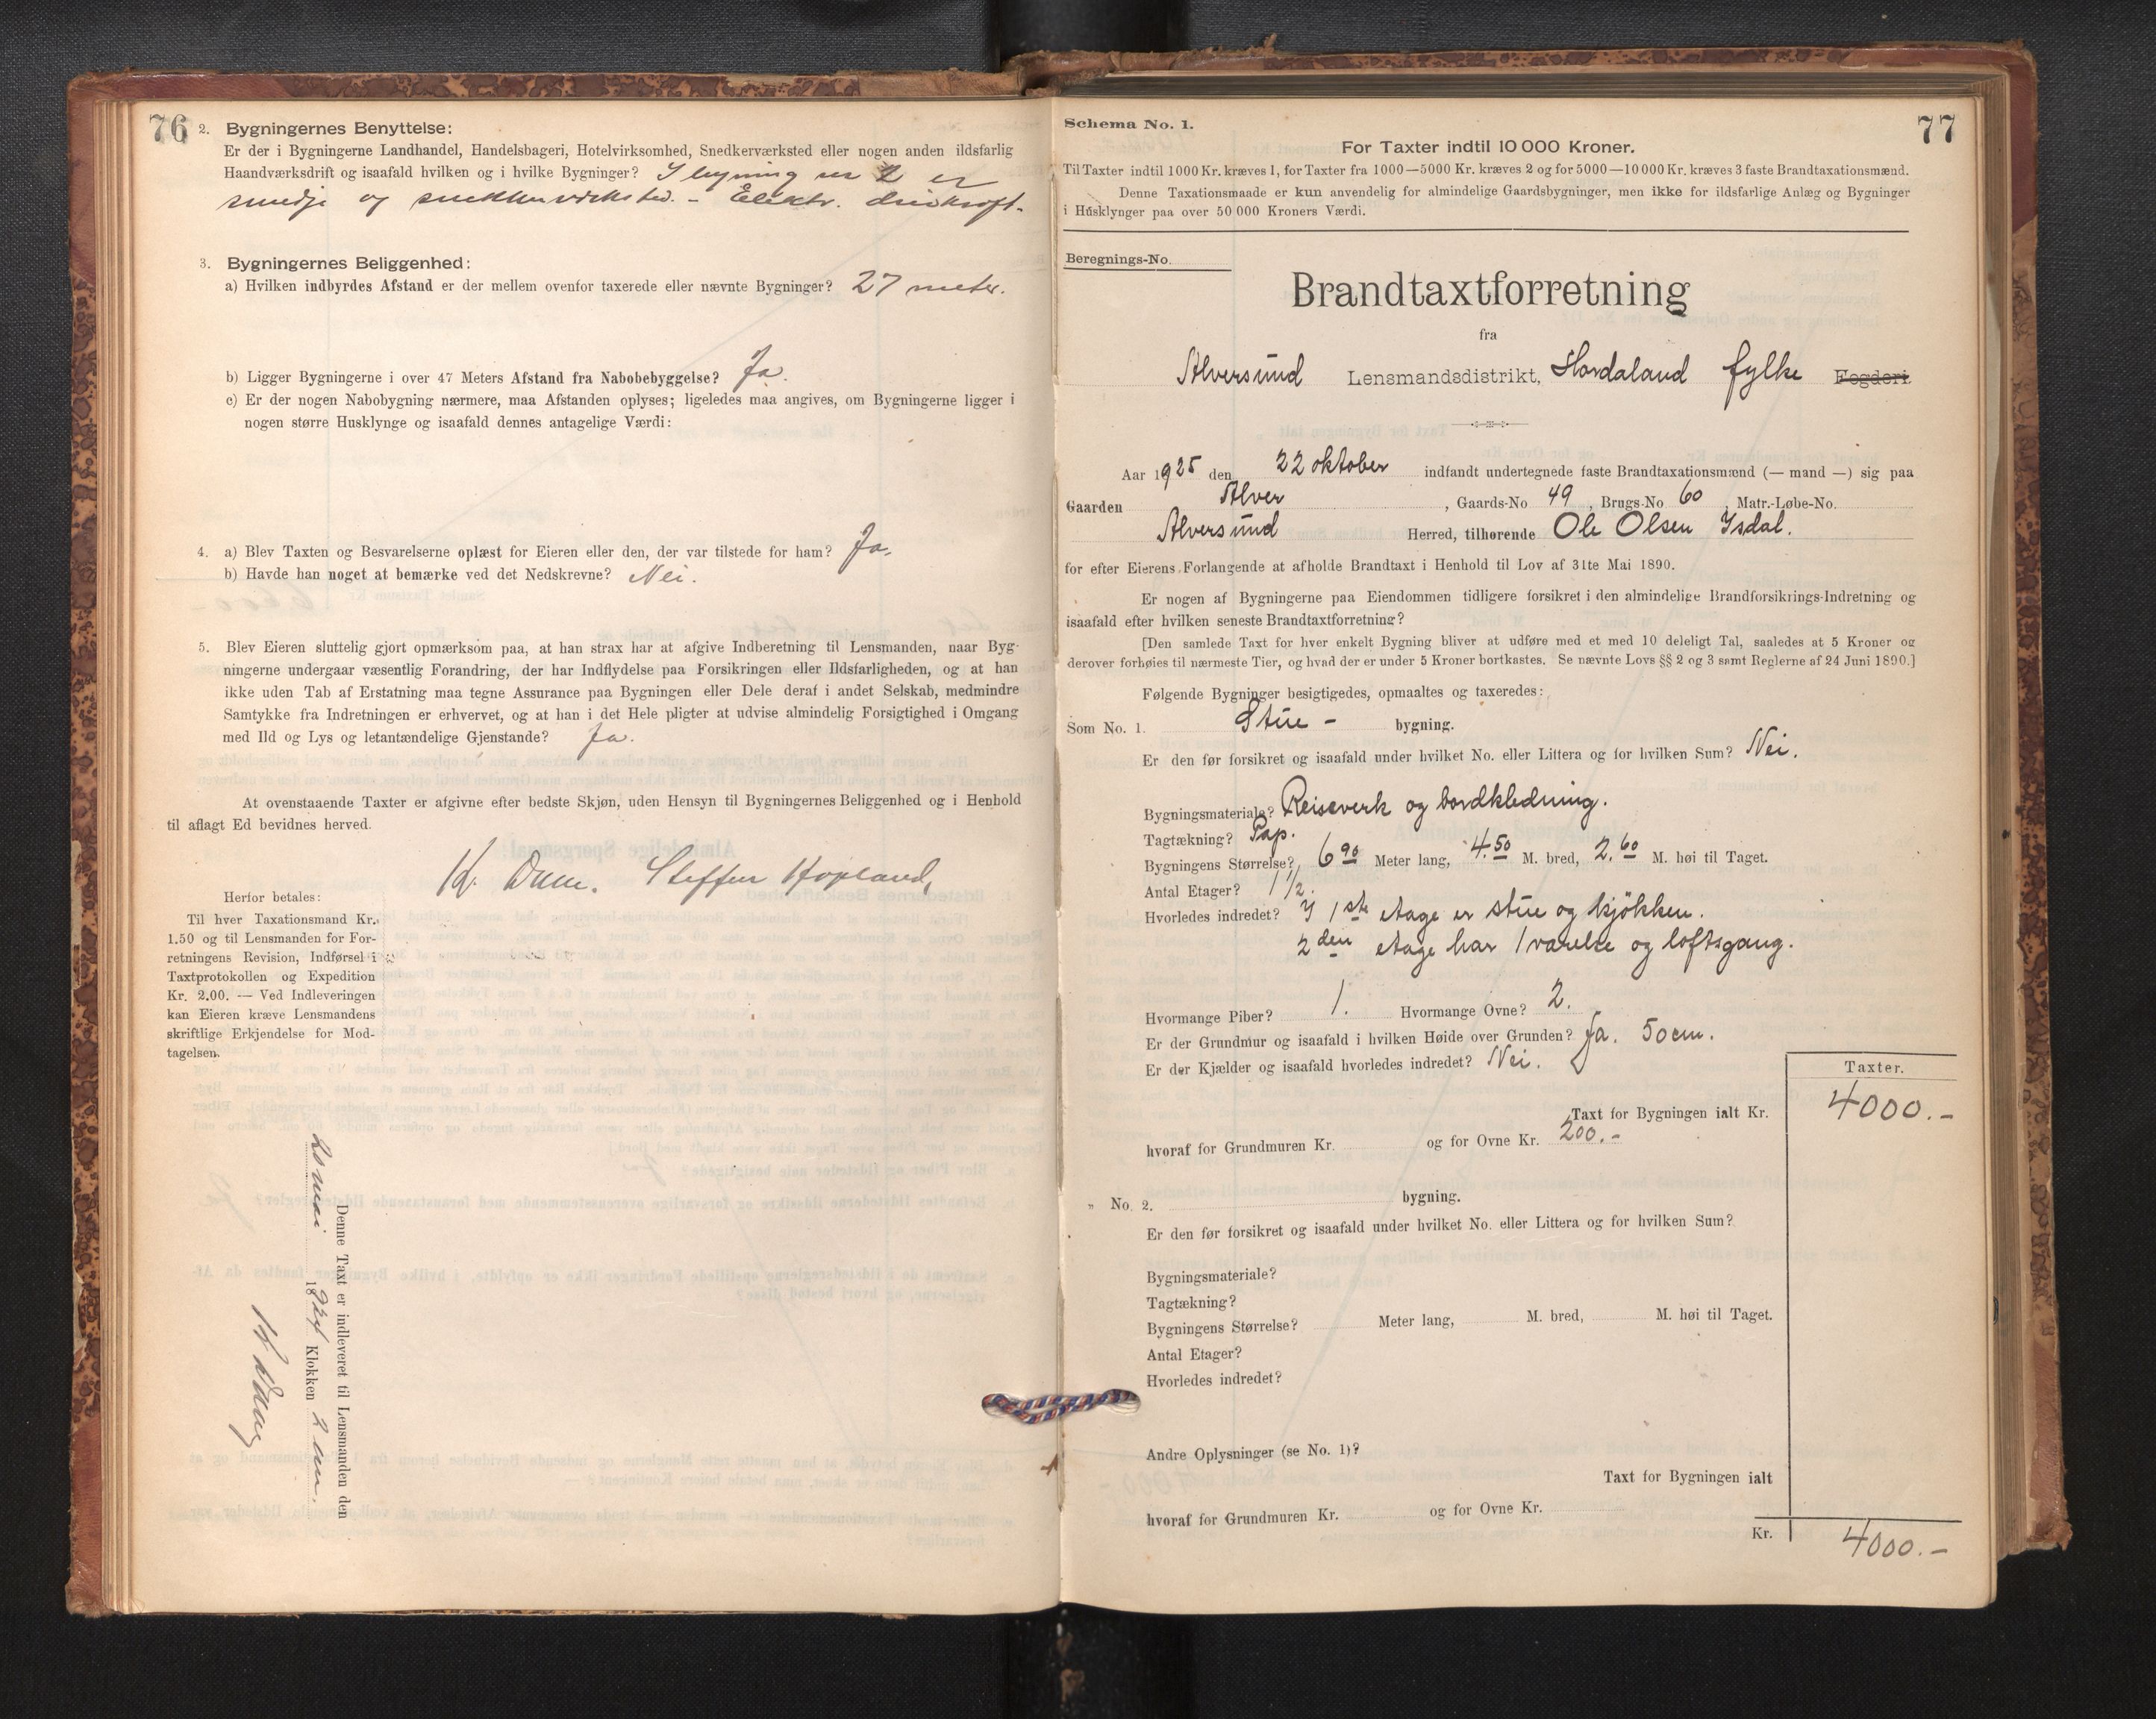 76
2. Bygningernes Benyttelse:
Er der i Bygningerne Landhandel, Handelsbageri, Hotelvirksomhed, Snedkerværksted eller nogen anden ildsfarlig
Haandværksdrift og isaafald hvilken og i hvilke Bygninger? I bygning nr 2 er
smedje og snekkerverksted. - Elektr. drivkraft.
3. Bygningernes Beliggenhed:
a) Hvilken indbyrdes Afstand er der mellem ovenfor taxerede eller nævnte Bygninger? 27 meter.
b) Ligger Bygningerne i over 47 Meters Afstand fra Nabobebyggelse? Ja.
c) Er der nogen Nabobygning nærmere, maa Afstanden oplyses; ligeledes maa angives, om Bygningerne ligger i
nogen større Husklynge og isaafald dennes antagelige Værdi:
4. a) Blev Taxten og Besvarelserne oplæst for Eieren eller den, der var tilstede for ham? Ja.
b) Havde han noget at bemærke ved det Nedskrevne? Nei.
5. Blev Eieren sluttelig gjort opmærksom paa, at han strax har at afgive Indberetning til Lensmanden, naar Byg-
ningerne undergaar væsentlig Forandring, der har Indflydelse paa Forsikringen eller Ildsfarligheden, og at han
ikke uden Tab af Erstatning maa tegne Assurance paa Bygningen eller Dele deraf i andet Selskab, medmindre
Samtykke fra Indretningen er erhvervet, og at han i det Hele pligter at udvise almindelig Forsigtighed i Omgang
med Ild og Lys og letantændelige Gjenstande? Ja.
At ovenstaaende Taxter er afgivne efter bedste Skjøn, uden Hensyn til Bygningernes Beliggenhed og i Henhold
til aflagt Ed bevidnes herved.
Steffen Hopland,
Herfor betales:
Til hver Taxationsmand Kr.
1.50 og til Lensmanden for For-
retningens Revision, Indførsel i
Taxtprotokollen og Expedition
Kr. 2.00. — Ved Indleveringen
kan Eieren kræve Lensmandens
skriftlige Erkjendelse for Mod-
tagelsen.
Denne Taxt er indleveret til Lensmanden den
mai 19 Klokken 2 em.
77
Schema No. 1.
For Taxter indtil 10 000 Kroner.
Til Taxter indtil 1000 Kr. kræves 1, for Taxter fra 1000—5000 Kr. kræves 2 og for 5000—10 000 Kr. kræves 3 faste Brandtaxationsmænd.
Denne Taxationsmaade er kun anvendelig for almindelige Gaardsbygninger, men ikke for ildsfarlige Anlæg og Bygninger
i Husklynger paa over 50 000 Kroners Værdi.
Beregnings-No.
Brandtaxtforretning
fra
Alversund Lensmandsdistrikt, Hordaland fylke Fogderi
Aar 1925 den 22 oktober indfandt undertegnede faste Brandtaxationsmænd (— mand —) sig paa
Gaarden Alver, Gaards-No 49, Brugs-No 60, Matr.-Løbe-No.
Alversund Herred, tilhørende Ole Olsen Isdal.
for efter Eierens Forlangende at afholde Brandtaxt i Henhold til Lov af 31te Mai 1890.
Er nogen af Bygningerne paa Eiendommen tidligere forsikret i den almindelige Brandforsikrings-Indretning og
isaafald efter hvilken seneste Brandtaxtforretning?
[Den samlede Taxt for hver enkelt Bygning bliver at udføre med et med 10 deleligt Tal, saaledes at 5 Kroner og
derover forhøies til nærmeste Tier, og hvad der er under 5 Kroner bortkastes. Se nævnte Lovs §§ 2 og 3 samt Reglerne af 24 Juni 1890.]
Følgende Bygninger besigtigedes, opmaaltes og taxeredes:
Som No. 1. Stue - bygning.
Er den før forsikret og isaafald under hvilket No. eller Littera og for hvilken Sum? Nei.
Bygningsmateriale? Reisverk og bordkledning.
Tagtækning? Pap.
Bygningens Størrelse? 6 90 Meter lang, 4.50 M. bred, 2.60 M. høi til Taget.
Antal Etager? 1 1/2.
Hvorledes indredet? I 1ste etage er stue og kjøkken.
2den etage har 1 værelse og loftsgang.
Hvormange Piber? 1. Hvormange Ovne? 2.
Er der Grundmur og isaafald i hvilken Høide over Grunden? Ja. 50 cm.
Er der Kjælder og isaafald hvorledes indredet? Nei.
Taxter.
Taxt for Bygningen ialt Kr. 4000.-
hvoraf for Grundmuren Kr. og for Ovne Kr. 200.-
" No. 2. bygning.
Er den før forsikret og isaafald under hvilket No. eller Littera og for hvilken Sum?
Bygningsmateriale?
Tagtækning?
Bygningens Størrelse? Meter lang, M. bred, M. høi til Taget.
Antal Etager?
Hvorledes indredet?
Andre Oplysninger (se No. 1)?
Taxt for Bygningen ialt
hvoraf for Grundmuren Kr. og for Ovne Kr.
Kr. 4000.-